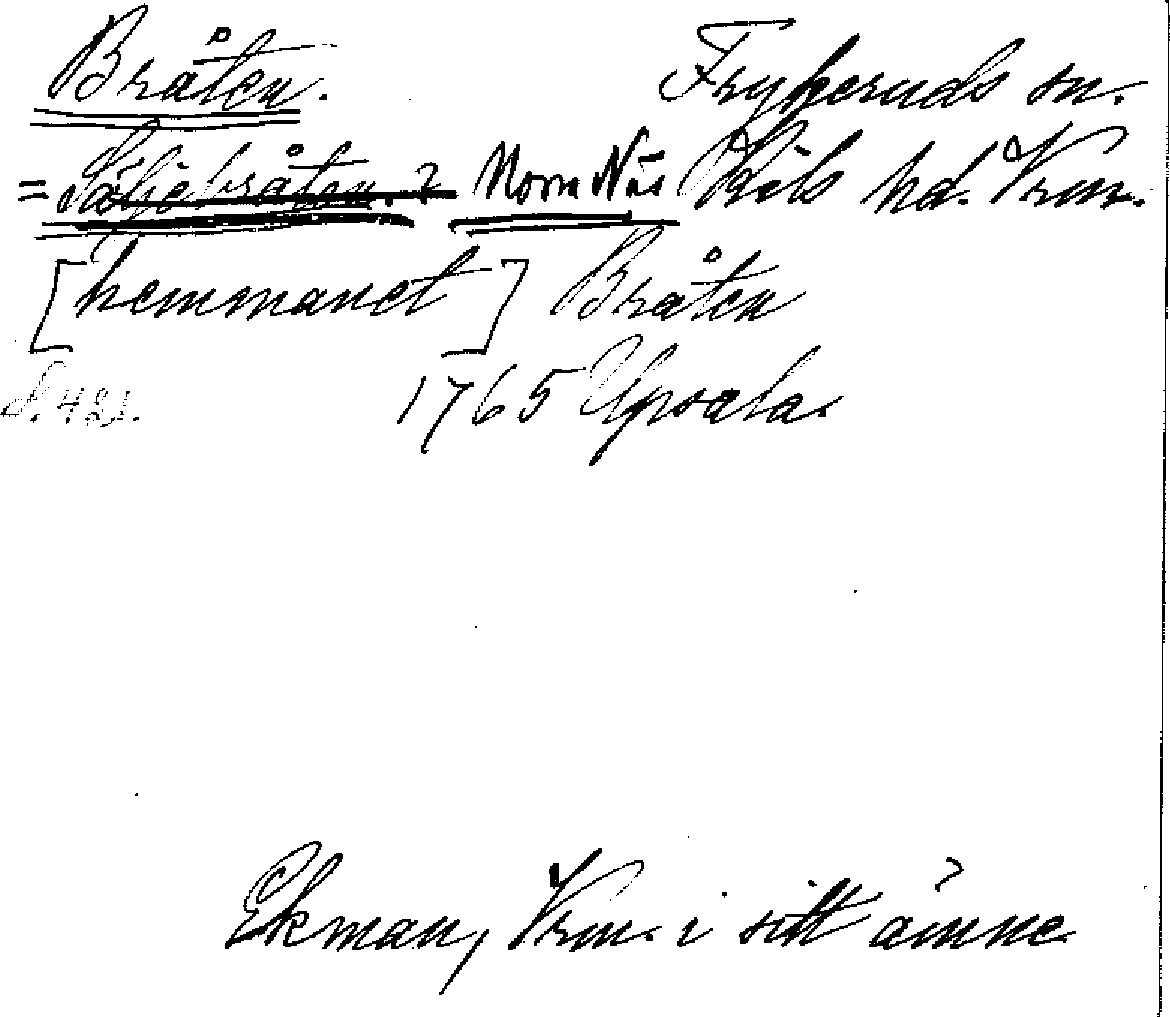 Bråten. Frykeruds sn.
= Säljebråten.? Norra Näs Kils hd. Vrm.
[hemmanet] Bråten
S. 421. 1765 Upsala.
Ekman, Vrm. i sitt ämne